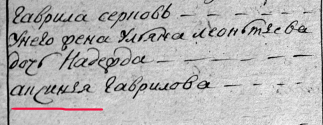 Гаврила серновъ
Унего жена Ульяна леонътиева
дочь Надежда
аксиния Гаврилова